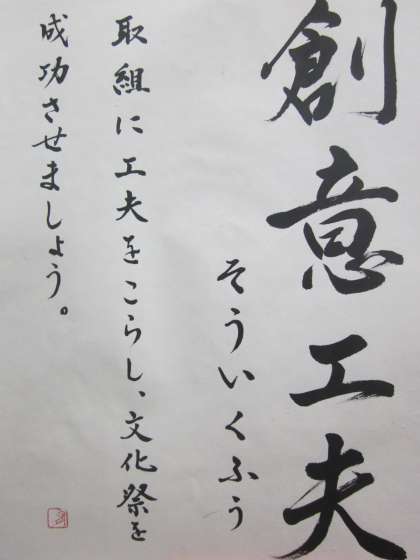 創意工夫
そういくふう
取組に工夫をこらし、文化祭を
成功させましょう。